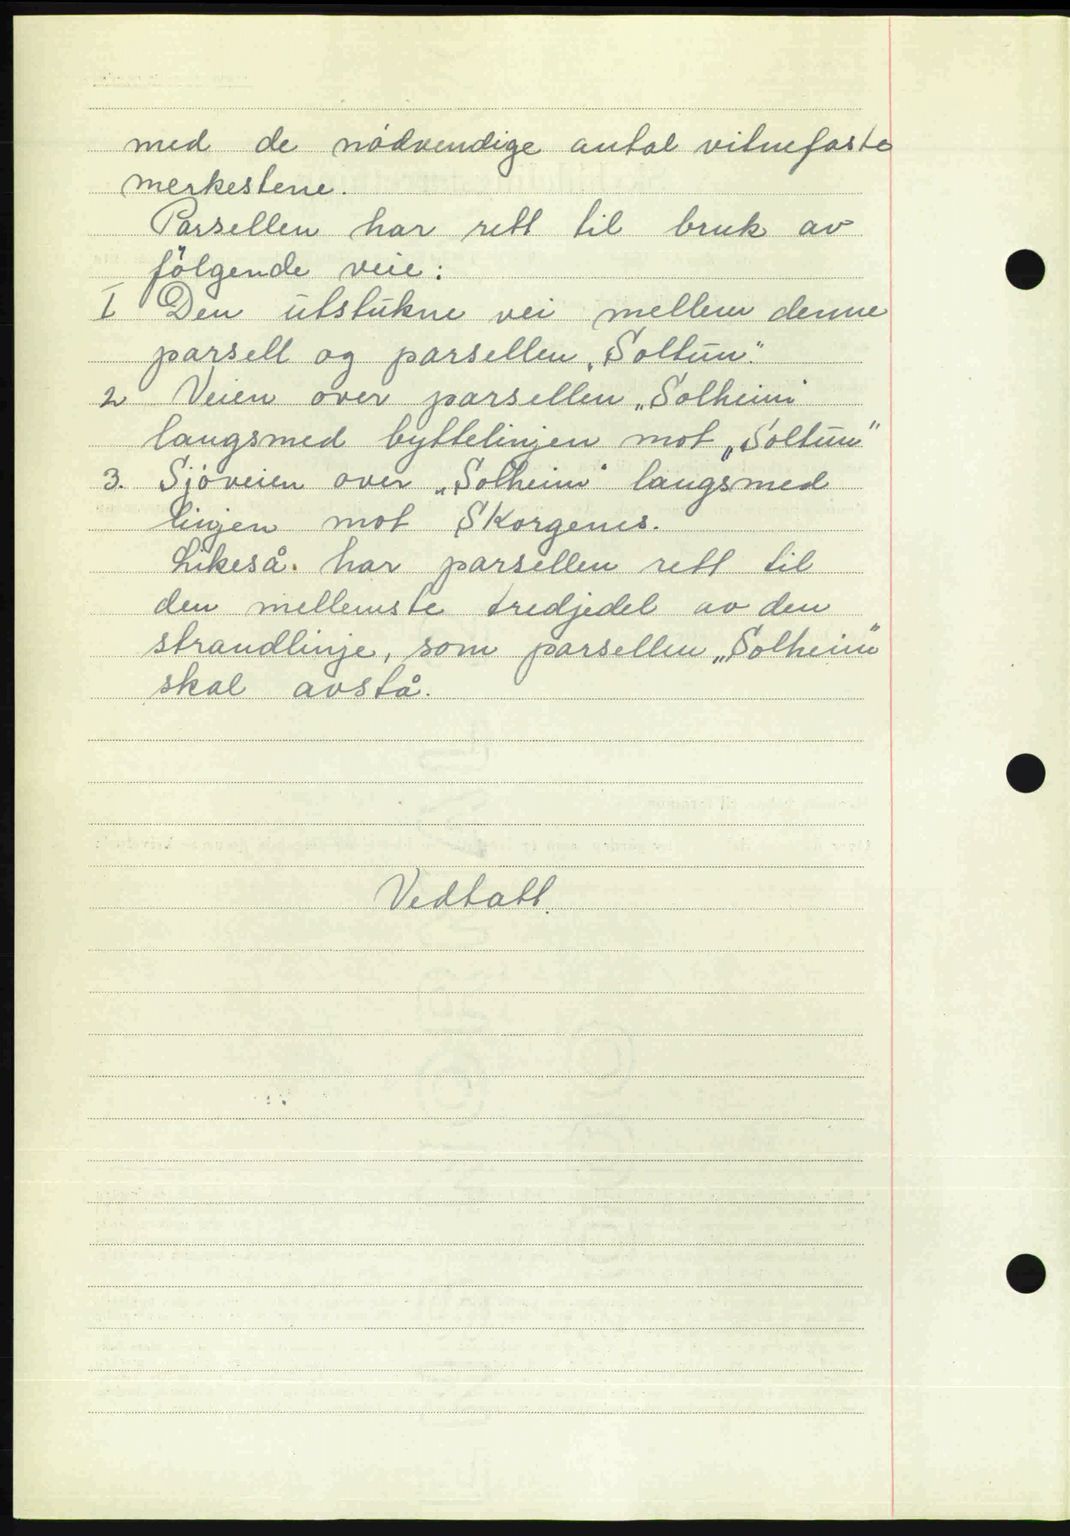 med de nödvendige antal vitnefaste
merkestene.
Parsellen har rett til bruk av
fölgende veie:
I Den utstukne vei mellem denne
parsell og parsellen „Soltun".
2 Veien over parsellen „Solheim"
langsmed byttelinjen mot „Soltun"
3. Sjöveien over „Solheim" langsmed
linjen mot Skorgenes.
Likeså har parsellen rett til
den mellemste tredjedel av den
strandlinje, som parsellen „Solheim"
skal avstå.
Vedtatt.